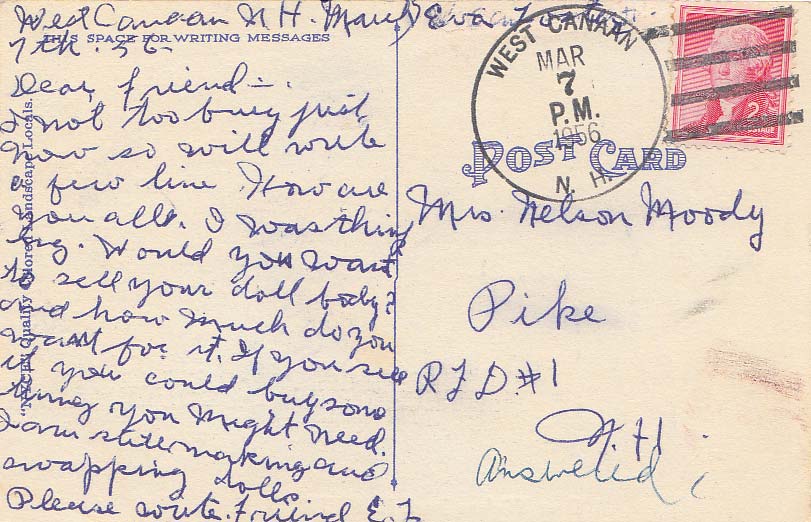 West Canaan N H. March
7th. 56
THIS SPACE FOR WRITING MESSAGES
Dear friend -.
I not too busy just
now so will write
a few line. How are
you all. I was think
ing. Would you want
to sell your doll body?
and how much do you
want for it. If you sell
it you could buy some
thing you might need.
I am still making and
swapping dolls.
Please write. Friend E.
"Quality Colored Landscape Locals.
Eva
WEST CANAAN
MAR
7
P.M.
1956
N. H.
2
POSTAGE
POST CARD
Mrs. Nelson Moody
Pike
R F D. #1
N. H.
Answered